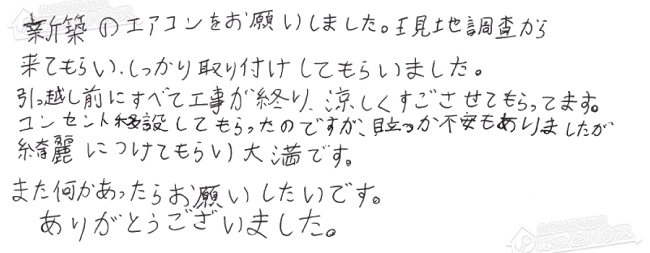 新築のエアコンをお願いしました。現地調査から
来てもらい、しっかり取り付けしてもらいました。
引っ越し前にすべて工事が終り、涼しくすごさせてもらってます。
コンセント経設してもらったのですが、目立つか不安もありましたが
綺麗につけてもらい大満です。
また何かあったらお願いしたいです。
ありがとうございました。